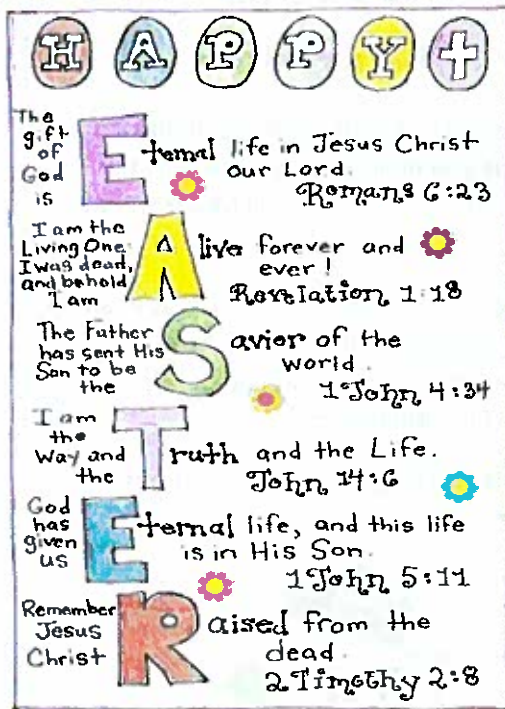 HAPPY
The
gift
of
God
is
Eternal life in Jesus Christ
our Lord.
Romans 6:23
I am the
Living One
I was dead,
and behold
I am
Alive forever and
ever!
Revelation 1:18
The Father
has sent His
Son to be
the
Savior of the
world.
1 John 4:34
I am
the
Way and
the
Truth and the Life.
John 14:6
God
has
given
us
Eternal life, and this life
is in His Son.
1 John 5:11
Remember
Jesus
Christ
Raised from the
dead.
2 Timothy 2:8